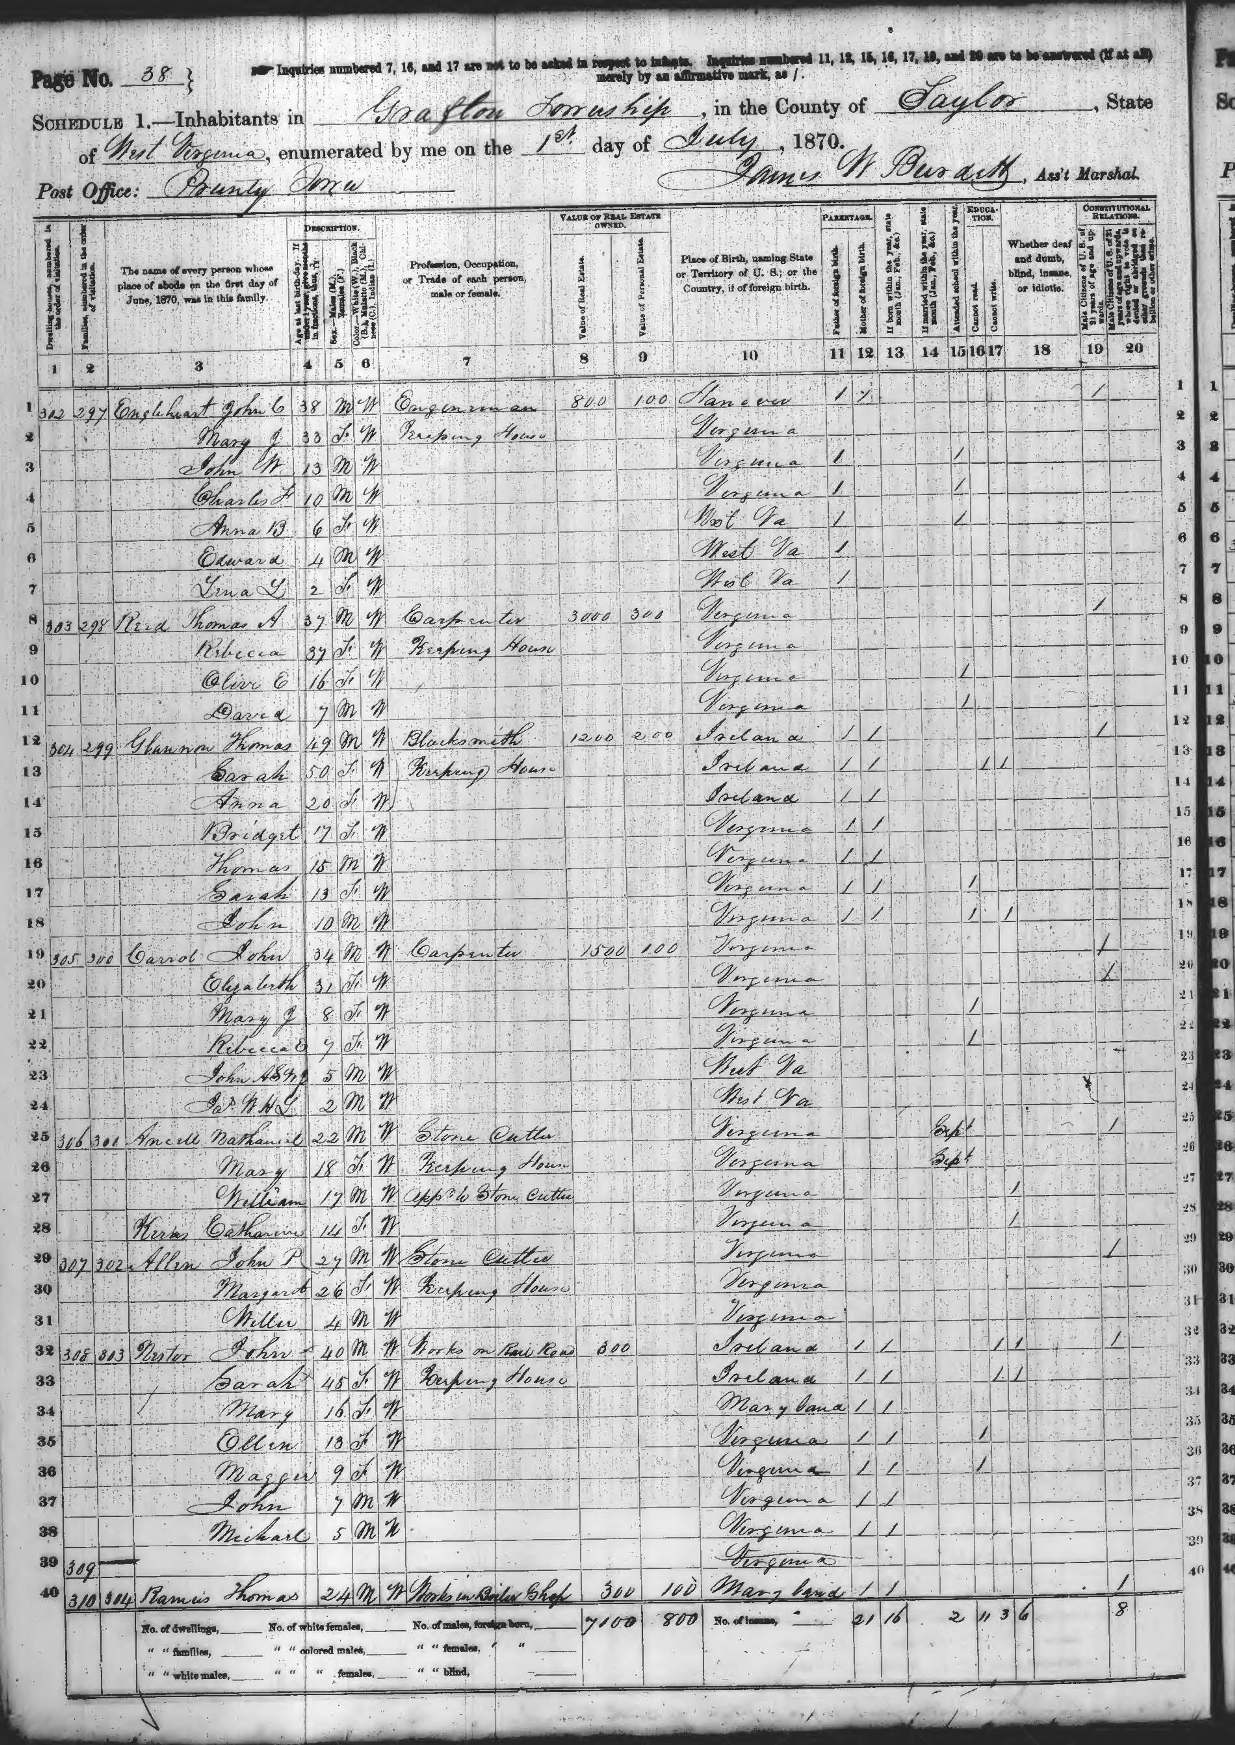 Page No. 38 } Inquiries numbered 7, 16, and 17 are not to be asked in respect to infants. Inquiries numbered 11, 12, 15, 16, 17, 19, and 20 are to be answered (if at all)
merely by an affirmative mark, as /.
SCHEDULE 1.—Inhabitants in Grafton Township, in the County of Taylor, State
of West Virginia, enumerated by me on the 1st day of July, 1870.
Post Office: Prunty Town James W Burdett, Ass't Marshal.
DESCRIPTION. VALUE OF REAL ESTATE OWNED. PARENTAGE. EDUCATION. CONSTITUTIONAL RELATIONS.
The name of every person whose place of abode on the first day of June, 1870, was in this family.
Profession, Occupation, or Trade of each person, male or female.
Value of Real Estate. Value of Personal Estate.
Place of Birth, naming State or Territory of U. S.; or the Country, if of foreign birth.
Father of foreign birth. Mother of foreign birth.
Attended school within the year. Cannot read. Cannot write.
Whether deaf and dumb, blind, insane, or idiotic.
1 2 3 4 5 6 7 8 9 10 11 12 13 14 15 16 17 18 19 20
1 302 297 Engleheart John C 38 M W Engineman 800 100 Hanover 1 1 1
2 Mary J 33 F W Keeping House Virginia
3 John W 13 M W Virginia 1 1
4 Charles F 10 M W Virginia 1 1
5 Anna B 6 F W West Va 1 1
6 Edward 4 M W West Va 1
7 Lena L 2 F W West Va 1
8 303 298 Reed Thomas A 37 M W Carpenter 3000 300 Virginia 1
9 Rebecca 37 F W Keeping House Virginia
10 Olive E 16 F W Virginia 1
11 David 7 M W Virginia 1
12 304 299 Thomas 49 M W Blacksmith 1200 200 Ireland 1 1 1
13 Sarah 50 F W Keeping House Ireland 1 1 1 1
14 Anna 20 F W Ireland 1 1
15 Bridget 17 F W Virginia 1 1
16 Thomas 15 M W Virginia 1 1
17 Sarah 13 F W Virginia 1 1 1
18 John 10 M W Virginia 1 1 1 1
19 305 300 Carrol John 34 M W Carpenter 1500 100 Virginia 1
20 Elizabeth 31 F W Virginia 1
21 Mary J 8 F W Virginia 1
22 Rebecca E 7 F W Virginia 1
23 John 5 M W West Va
24 Jas W H L 2 M W West Va
25 306 301 Ancell Nathaniel 22 M W Stone Cutter Virginia Sept 1
26 Mary 18 F W Keeping House Virginia Sept
27 William 17 M W App to Stone Cutter Virginia 1
28 Catharine 14 F W Virginia 1
29 307 302 Allen John P 27 M W Stone Cutter Virginia 1
30 Margaret 26 F W Keeping House Virginia
31 Willie 4 M W Virginia
32 308 303 Nestor John 40 M W Works on Rail Road 300 Ireland 1 1 1 1 1
33 Sarah 45 F W Keeping House Ireland 1 1 1 1
34 Mary 16 F W Maryland 1 1
35 Ellen 13 F W Virginia 1 1 1
36 Maggie 9 F W Virginia 1 1 1
37 John 7 M W Virginia 1 1
38 Michael 5 M W Virginia 1 1
39 309 Virginia
40 310 304 Thomas 24 M W Works in Boiler Shop 300 100 Maryland 1 1 1
No. of dwellings, No. of white females, No. of males, foreign born, 7100 800 No. of insane, 21 16 2 11 3 6 8
" " families, " " colored males, " " females, " "
" " white males, " " " females, " " blind,